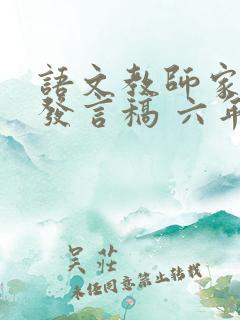 語文教師家
發言稿 六年
吳莊
未经同意禁止转载